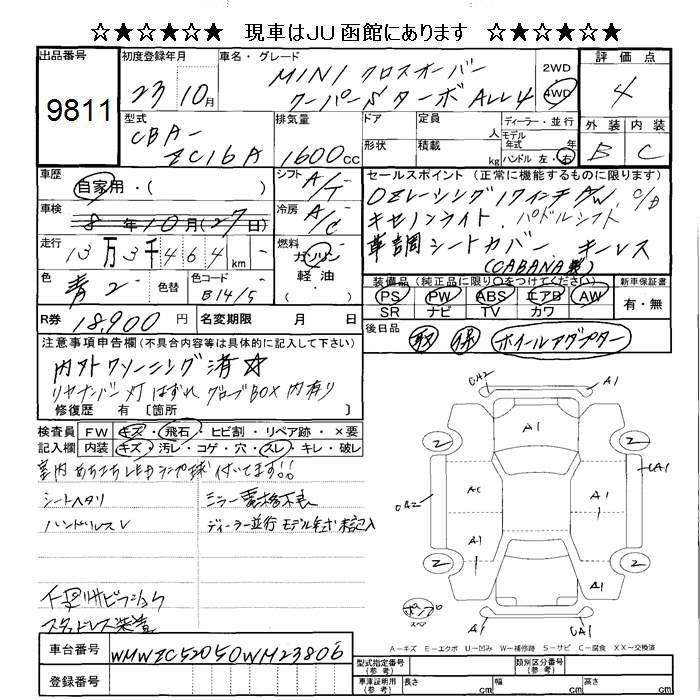 ☆★☆★☆ 現車はJU函館にあります ☆★☆★☆
出品番号
9811
初度登録年月
23年10月
車名・グレード
MINI クロスオーバー
クーパーS ターボ ALL4
2WD
4WD
評価点
4
外装 内装
B C
型式
CBA-
ZC16A
排気量
1600cc
ドア
形状
定員
人
積載
kg
ディーラー・並行
モデル
年式 年
ハンドル 左・右
車歴
自家用・( )
シフト
A/T
車検
8年10月(27日)
冷房
A/C
走行
13万3千464km
燃料
ガソリン
軽油
( )
色
青2
色替
色コード
B14/5
R券 18,900円
名変期限 月 日
セールスポイント(正常に機能するものに限ります)
OZレーシング17インチA/W, C/D
キセノンライト, パドルシフト
革調シートカバー キーレス
(CABANA製)
装備品(純正品に限り○をつけてください)
PS PW ABS エアB AW
SR ナビ TV カワ
新車保証書
有・無
後日品 取 保 ホイールアダプター
注意事項申告欄(不具合内容等は具体的に記入して下さい)
内外クリーニング済☆
リヤナンバー灯はずれ グローブBOX内有り
修復歴 有 〔箇所
検査員
記入欄
FW キズ・飛石・ヒビ割・リペア跡・×要
内装 キズ・汚レ・コゲ・穴・スレ・キレ・破レ
室内あちこちLED 付いてます!!
シートヘタリ
ミラー電格不良
ハンドルスレ
ディーラー並行 モデル年式未記入
下回りサビ
スタッドレス装着
UA2
A1
A1
2
2
UA2
A1
UA1
A1
A1
A1
2
2
A1
A1
UA1
スペ
A-キズ E-エクボ U-凹み W-補修跡 S-サビ C-腐食 XX~交換済
車台番号
WMWZC52050WM23806
登録番号
型式指定番号
(参考)
類別区分番号
(参考)
車庫証明用
(参考)
長さ cm
幅 cm
高さ cm